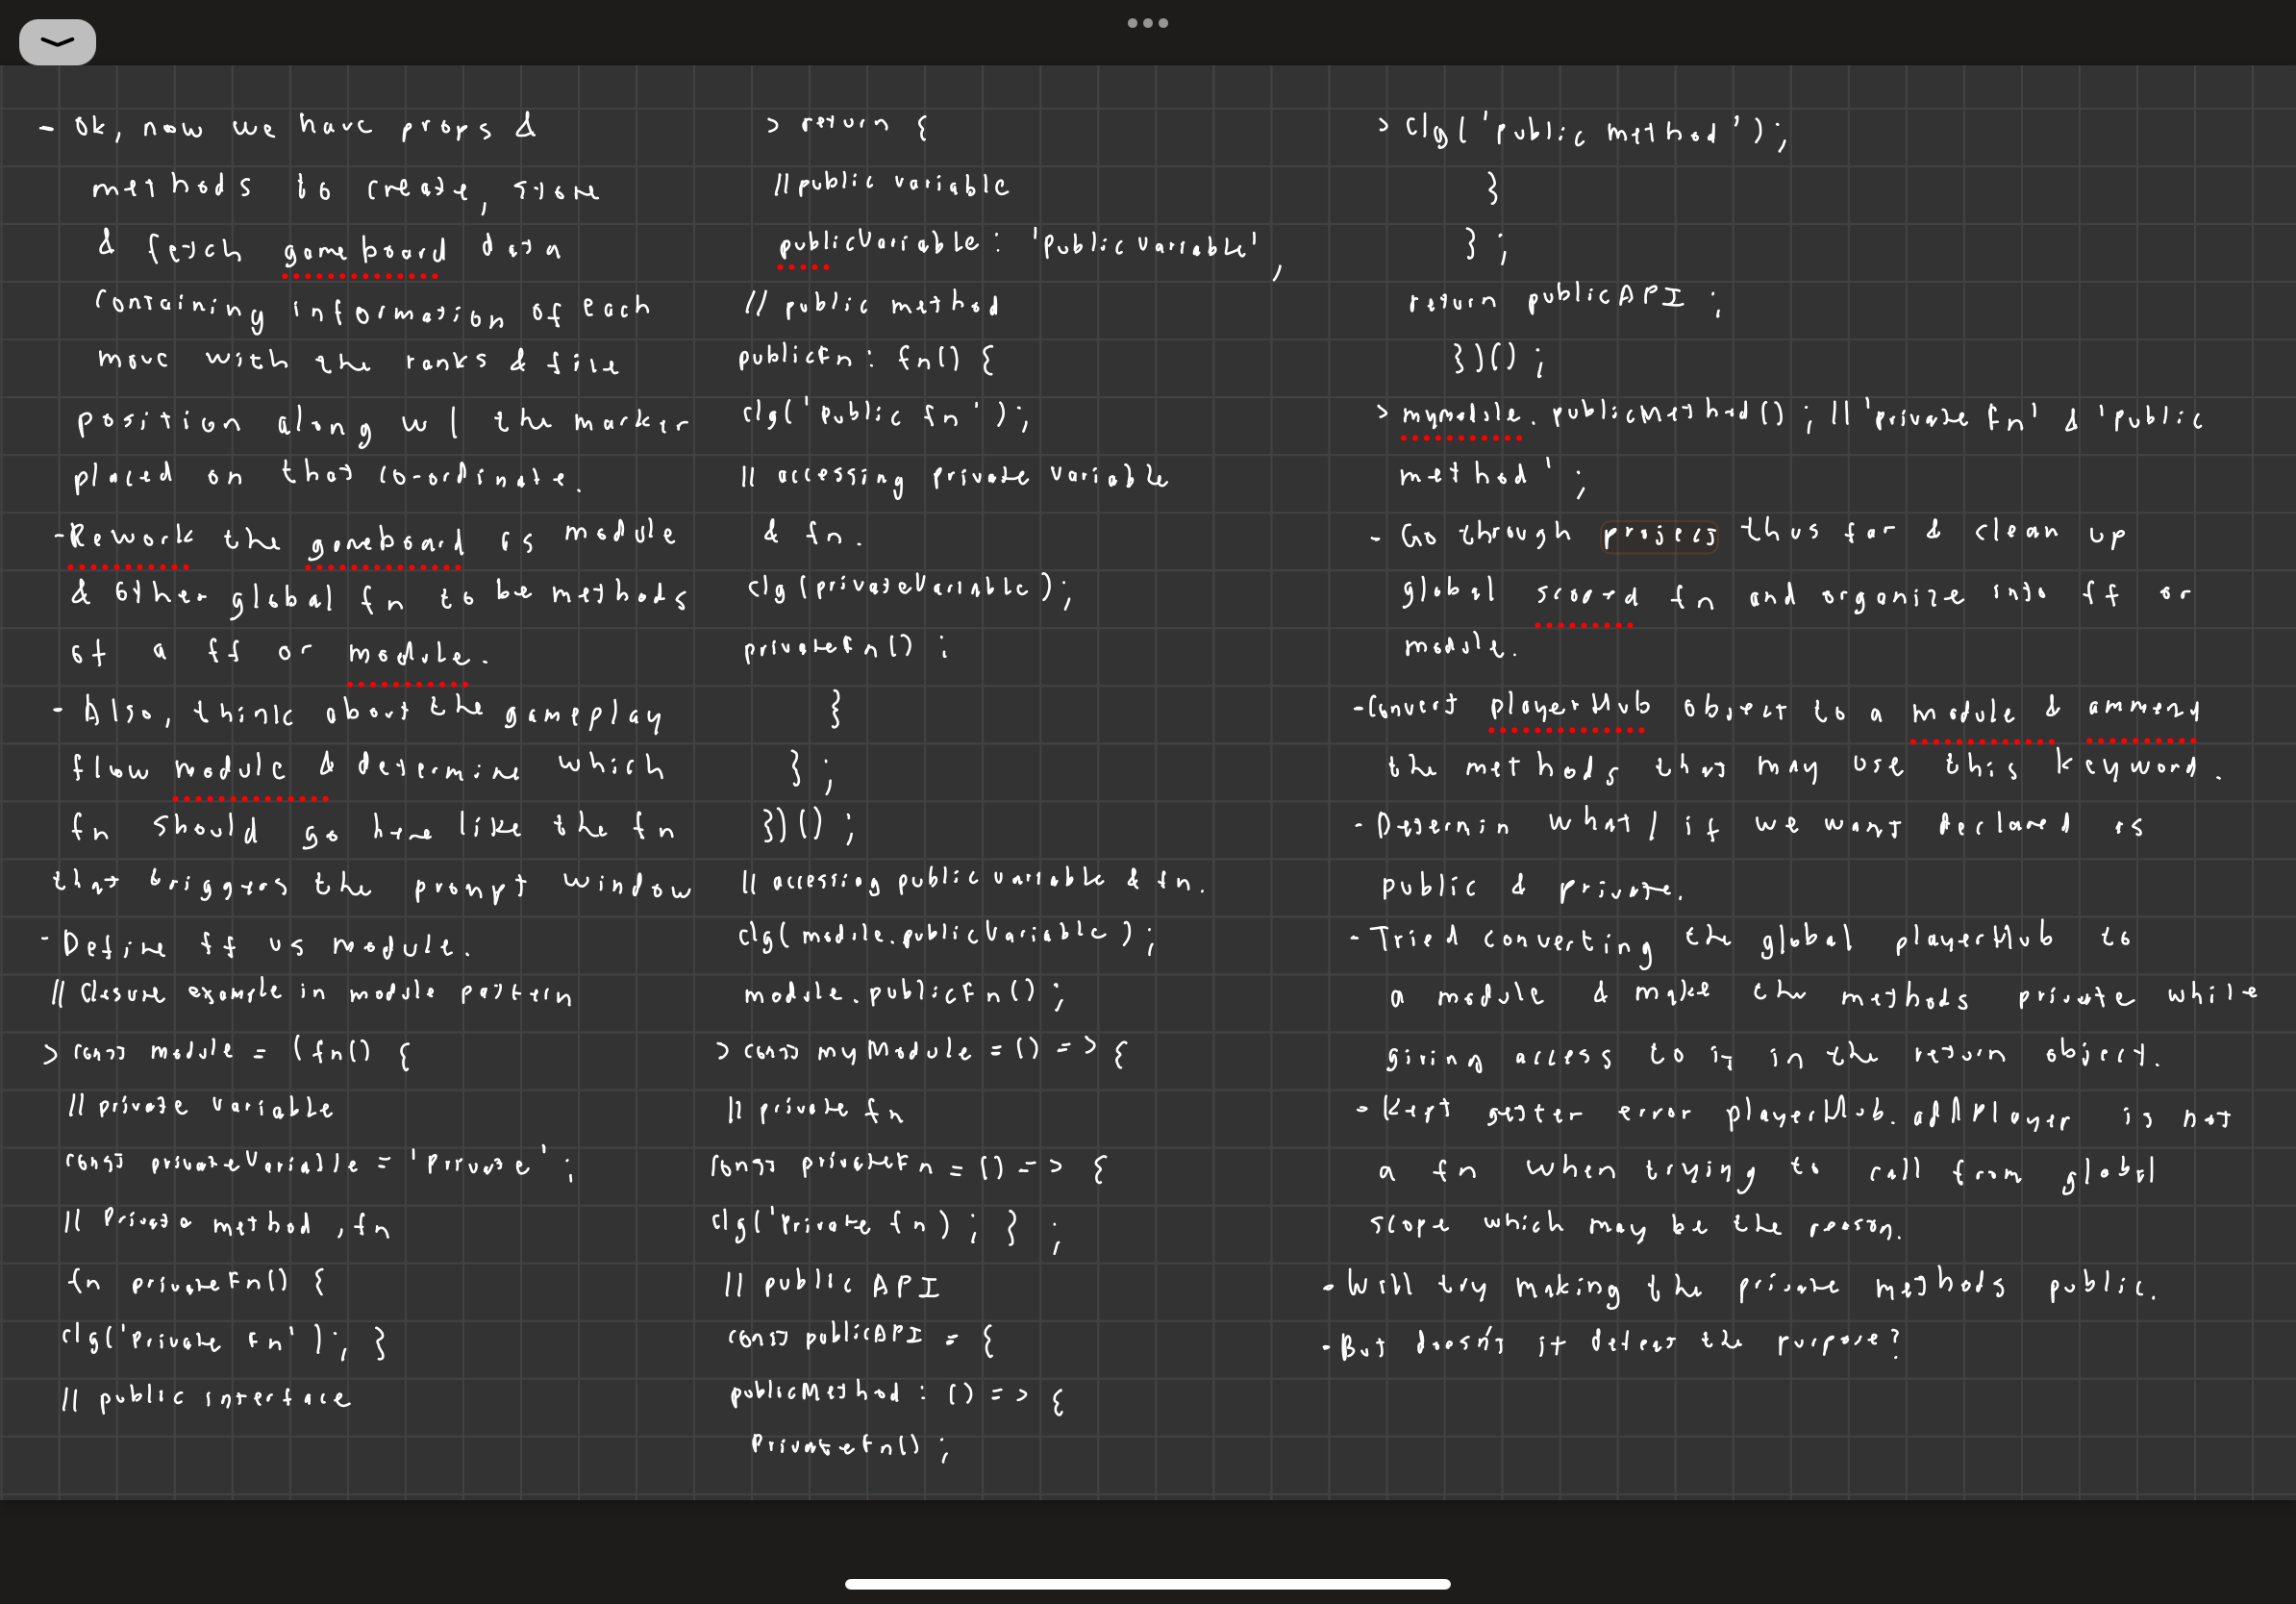 - Ok, now we have props &
methods to create, store
& fetch gameboard data
containing information of each
move with the ranks & file
position along w/ the marker
placed on that co-ordinate.
- Rework the gameboard as module
& other global fn to be methods
of a ff or module.
- Also, think about the gameplay
flow module & determine which
fn should go here like the fn
that triggers the prompt window
- Define ff vs module.
// Closure example in module pattern
> const module = (fn() {
// private variable
const privateVariable = 'Private' ;
// Private method, fn
fn privateFn() {
clg('Private Fn'); }
// public interface
> return {
// public variable
publicVariable: 'Public variable',
// public method
publicFn: fn() {
clg('Public fn');
// accessing private variable
& fn.
clg(privateVariable);
privateFn();
}
};
})();
// accessing public variable & fn.
clg(module.publicVariable);
module.publicFn();
> const myModule = () => {
// private fn
const privateFn = () => {
clg('Private fn); } ;
// public API
const publicAPI = {
publicMethod: () => {
PrivateFn();
> clg('public method');
}
};
return publicAPI;
})();
> mymodule.publicMethod(); // 'private fn' & 'public
method';
- Go through project thus far & clean up
global scoped fn and organize into ff or
module.
- Convert playerHub object to a module &
the methods that may use this keyword.
- Determin what/if we want declared as
public & private.
- Tried converting the global playerHub to
a module & make the methods private while
giving access to it in the return object.
- Kept getter error playerHub.addPlayer is not
a fn when trying to call from global
scope which may be the reason.
- Will try making the private methods public.
- But doesn't it defeat the purpose?